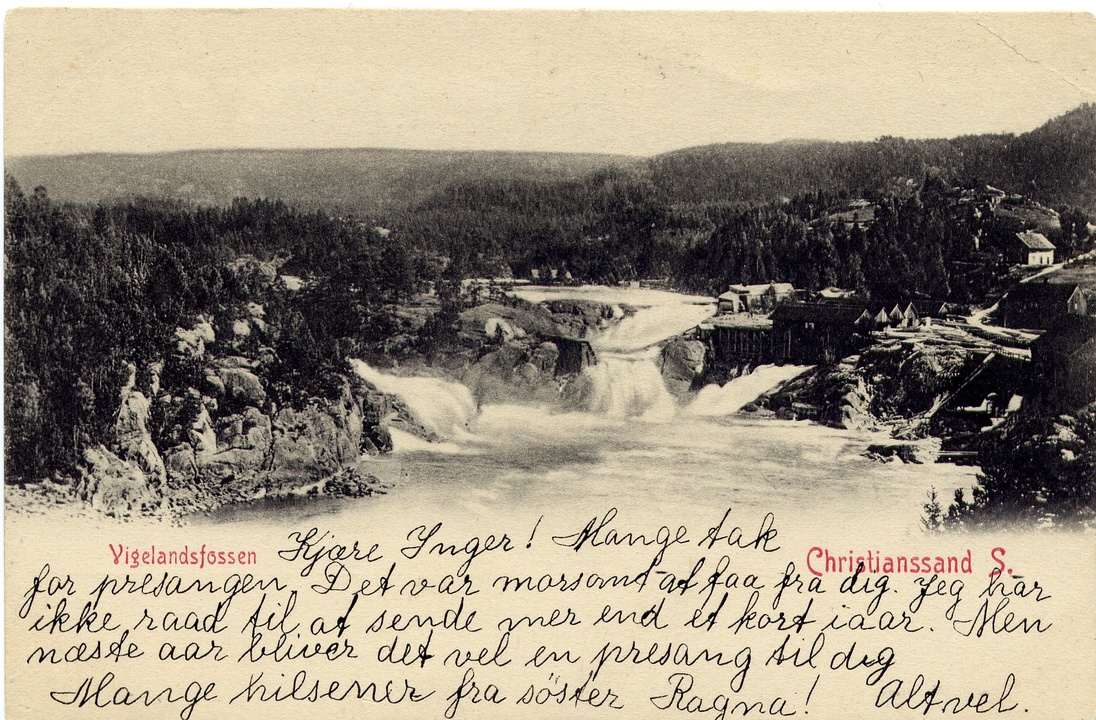 Vigelandsfossen
Christianssand S.
Kjære Inger! Mange tak
for presangen. Det var morsomt at faa fra dig. Jeg har
ikke raad til at sende mer end et kort iaar. Men
næste aar bliver det vel en presang til dig
Mange hilsener fra søster Ragna! Alt vel.